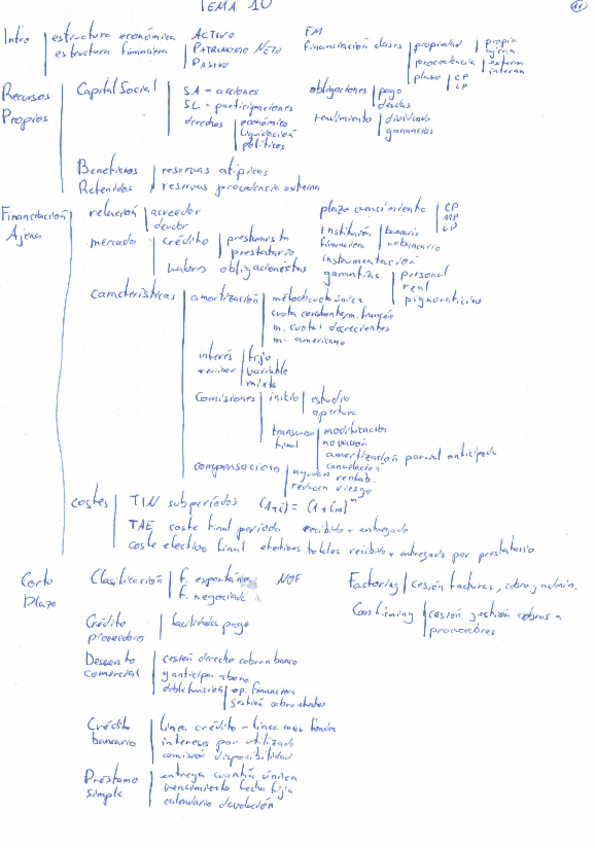 TEMA 10
Intro
estructura económica
estructura financiera
ACTIVO
PATRIMONIO NETO
PASIVO
FM
Financiación clases
propiedad
propia
ajena
procedencia
externa
interna
plazo
CP
LP
Recursos
Propios
Capital Social
SA - acciones
SL - participaciones
derechos
económico
liquidación
políticos
obligaciones
pago
deudas
rendimiento
dividendo
ganancias
Beneficios
Retenidos
reservas atípicas
reservas procedencia externa
Financiación
Ajena
relación
acreedor
deudor
mercado
crédito
prestamista
prestatario
valores obligacionistas
plazo vencimiento
CP
MP
LP
institución
financiera
bancario
no bancario
instrumentación
garantías
personal
real
pignoraticias
características
amortización
método cuota única
cuota constante, m. francés
m. cuotas decrecientes
m. americano
interés
fijo
variable
mixto
Comisiones
inicio
estudio
apertura
transcurso
final
modificación
novación
amortización parcial anticipada
cancelación
compensaciones
rentab.
reducen riesgo
costes
TIN subperíodos (1+i) = (1+im)^m
TAE coste final período recibido + entregado
coste efectivo final efectivos totales recibido + entregado por prestatario
Corto
Plazo
Clasificación
f. espontánea
f. negociada
NOF
Factoring
cesión facturas, cobro y admin.
Confirming
cesión gestión cobros a
proveedores
Crédito
proveedores
facilidades pago
Descuento
comercial
cesión derecho cobro a banco
y anticipo abono
doble función
op. financiera
gestión cobro efectos
Crédito
bancario
línea crédito - línea max fondos
intereses por utilizado
comisión disponibilidad
Préstamo
simple
entrega cuantía única
vencimiento fecha fija
calendario devolución